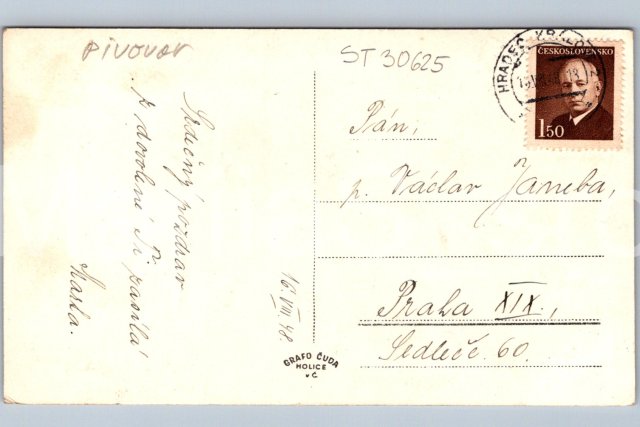 pivovar
ST 30625
HRADEC KRÁLOVÉ
ČESKOSLOVENSKO
1.50
Srdečný pozdrav
z dovolené Ti zasílá
Vlasta.
16. VIII. 48.
GRAFO ČUDA
HOLICE
v Č
Pán,
p. Václav Janeba,
Praha XIX.,
Sedleč

60.